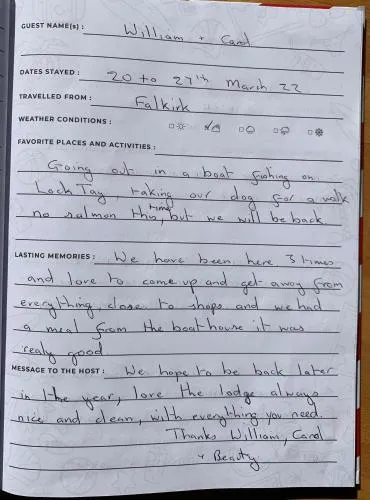 GUEST NAME(s) : William + Carol
DATES STAYED : 20 to 27th March 22
TRAVELLED FROM : Falkirk
WEATHER CONDITIONS :
FAVORITE PLACES AND ACTIVITIES :
Going out in a boat fishing on
Loch Tay, taking our dog for a walk
no salmon this time, but we will be back
LASTING MEMORIES : We have been here 3 times
and love to come up and get away from
everything, close to shops and we had
a meal from the boathouse it was
realy good
MESSAGE TO THE HOST : We hope to be back later
in the year, love the lodge always
nice and clean, with everything you need.
Thanks William, Carol
+ Beauty